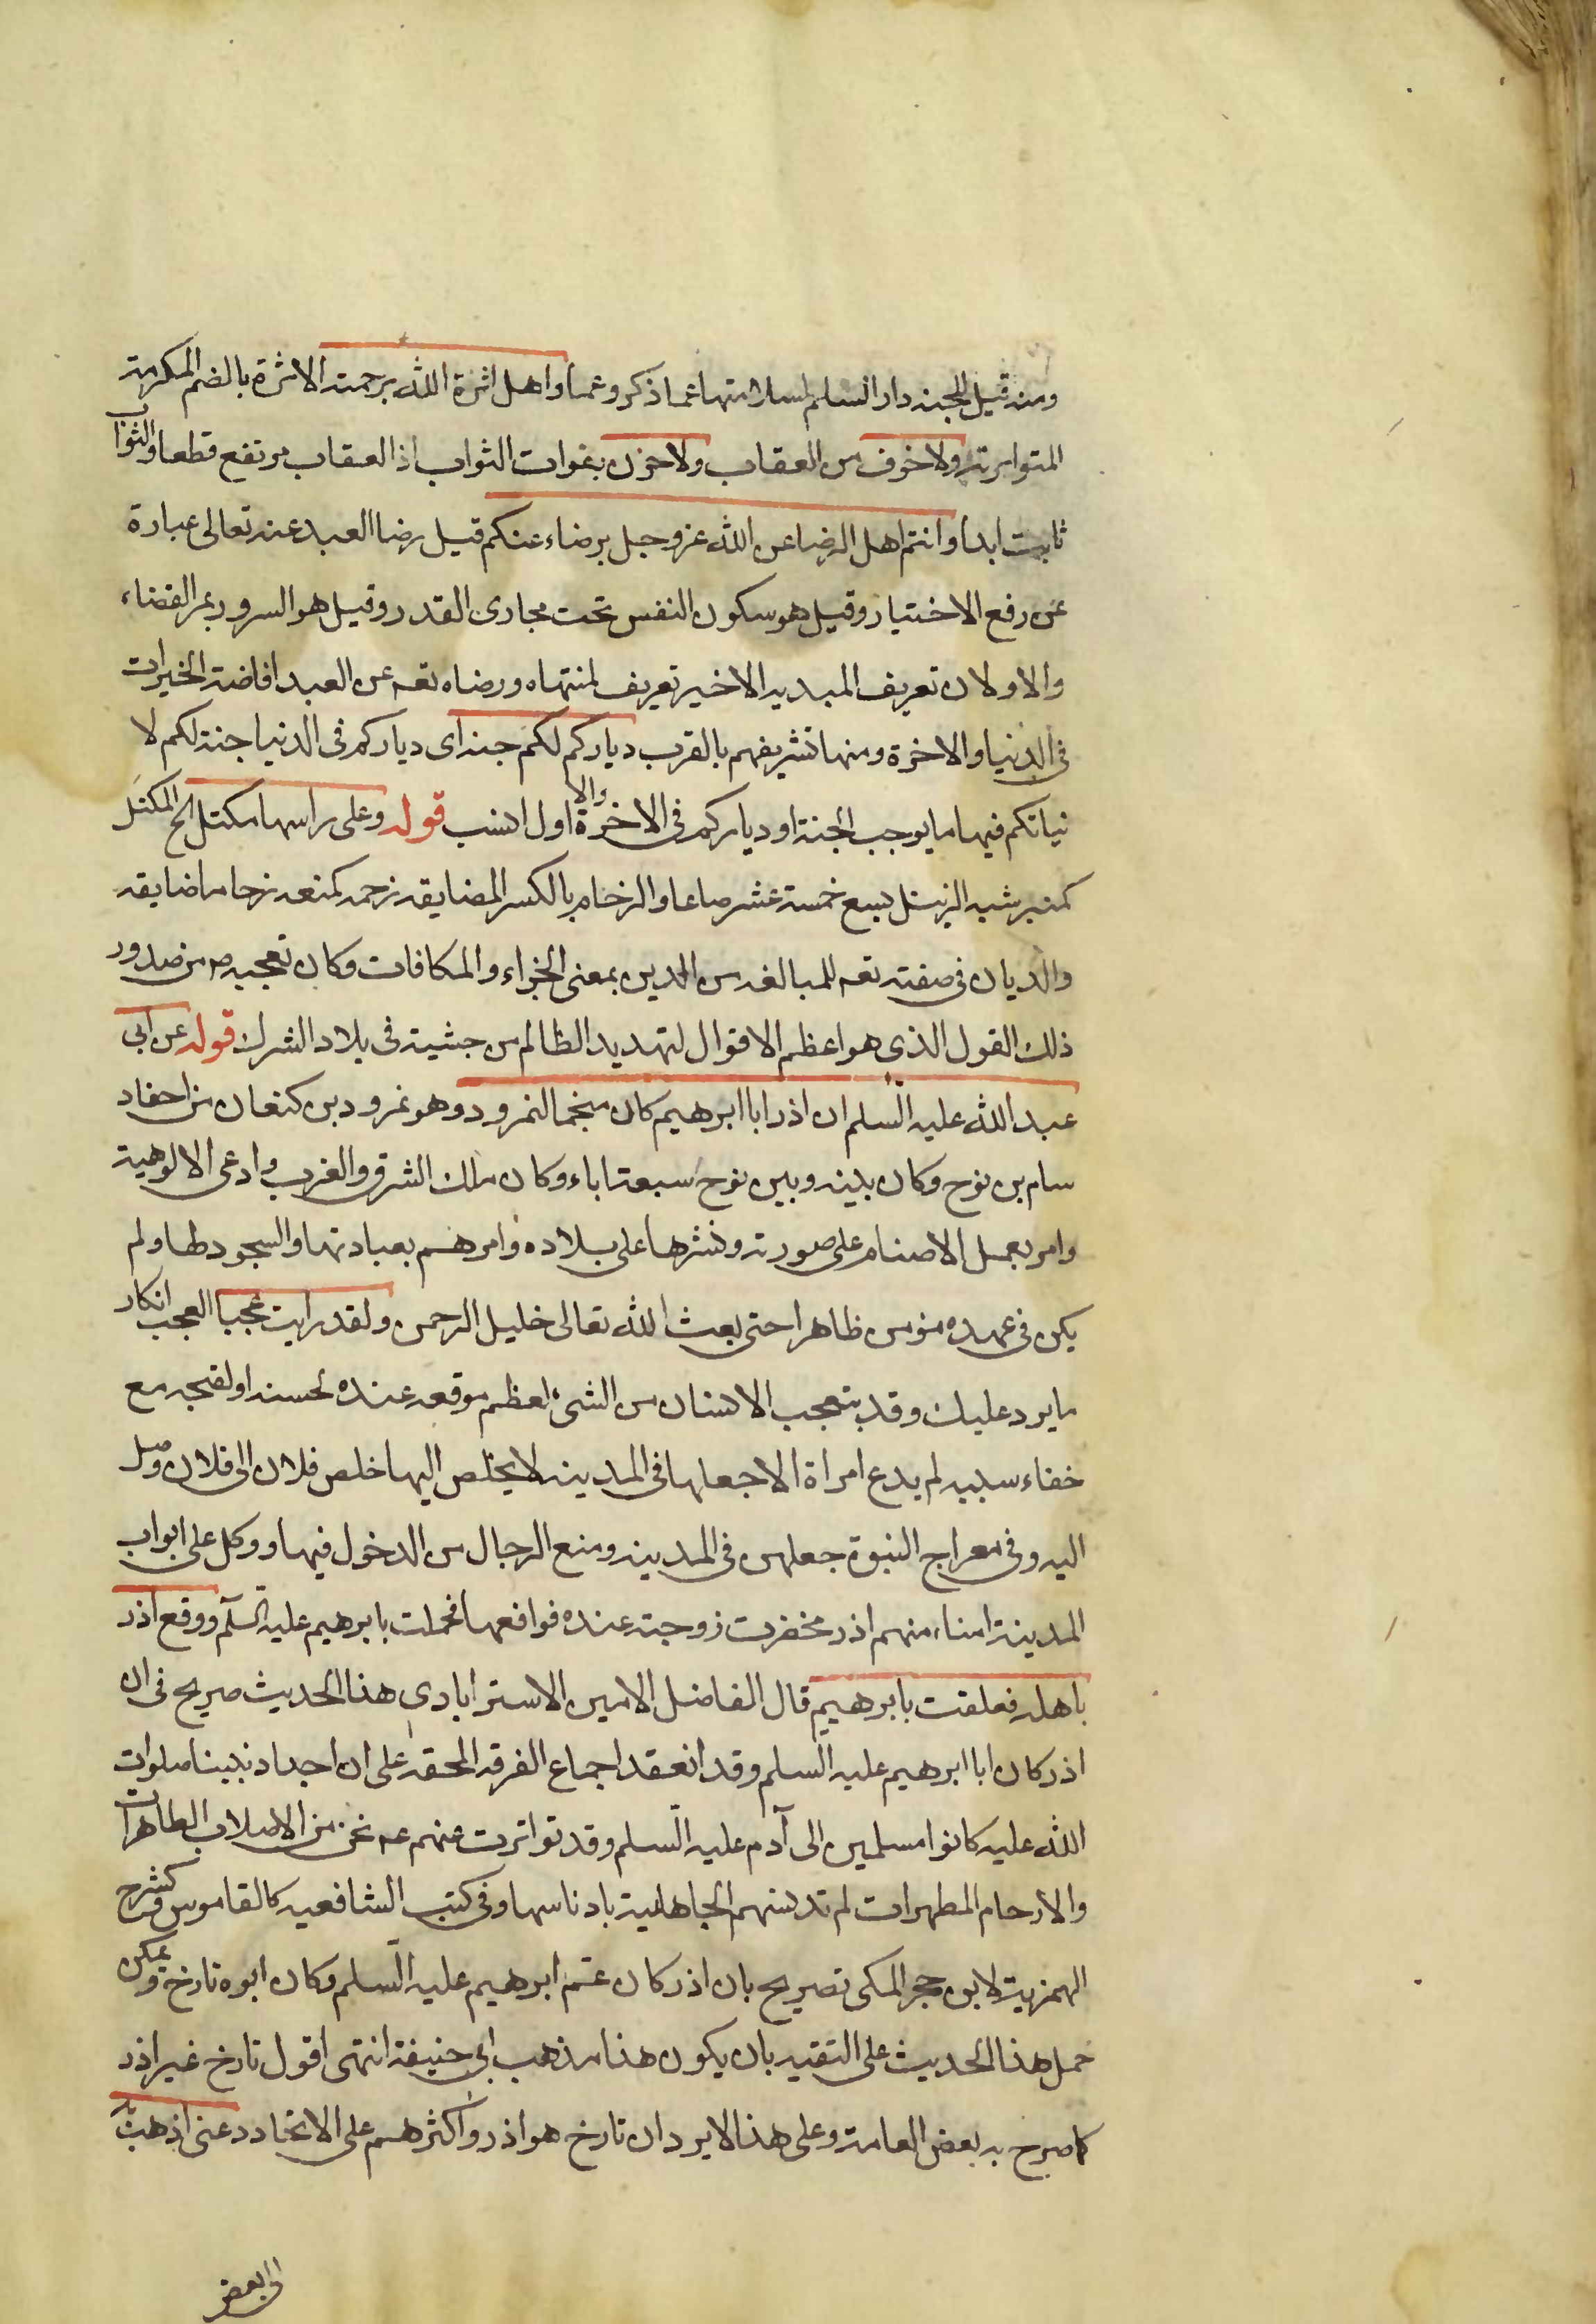 ومنه قيل للجنة دار السلم لسلامتها عما ذكر وعما واهل اثرة الله برحمته الاثرة بالضم المكرمة
المتوارثة ولا خوف من العقاب ولا حزن بفوات الثواب اذ العقاب مرتفع قطعا والثواب
ثابت ابدا وانتم اهل الرضا عن الله عز وجل برضاء عنكم قيل رضا العبد عنه تعالى عبارة
عن رفع الاختيار وقيل هو سكون النفس تحت مجارى القدر وقيل هو السرور بمر القضاء
والاولان تعريف المبدء والاخير تعريف لمنتهاه ورضاه تعه عن العبد افاضة الخيرات
فى الدنيا والاخرة ومنها تشريفهم بالقرب دياركم لكم جنة اى دياركم فى الدنيا جنة لكم لا
نياتكم فيها ما يوجب الجنة او دياركم فى الاخرة والاول انسب قوله وعلى راسها مكتل الخ المكتل
كمنبر شبه الزنبيل يسع خمسة عشر صاعا والزحام بالكسر المضايقه زحمه كمنعه زحاما ضايقه
والديان فى صفته تعه للمبالغه من الدين بمعنى الجزاء والمكافات وكان تعجبه ص من صدور
ذلك القول الذى هو اعظم الاقوال لتهديد الظالم من حبشية فى بلاد الشرك قوله عن ابى
عبد الله عليه السلم ان اذر ابا ابرهيم كان منجما لنمرود وهو نمرود بن كنعان من احفاد
سام بن نوح وكان بينه وبين نوح سبعة اباء وكان ملك الشرق والغرب وادعى الالوهية
وامر بعمل الاصنام على صورته ونشرها على بلاده وامرهم بعبادتها والسجود لها ولم
يكن فى عهده مؤمن ظاهرا حتى بعث الله تعالى خليل الرحمن ولقد رايت عجبا العجب انكار
ما يرد عليك وقد يتعجب الانسان من الشىء لعظم موقعه عنده لحسنه او لقبحه مع
خفاء سببه لم يدع امراة الا جعلها فى المدينه لا يخلص اليها خلص فلان الى فلان وصل
اليه وفى معراج النبوة جعلهن فى المدينه ومنع الرجال من الدخول فيها ووكل على ابواب
المدينة امناء منهم اذر فحضرت زوجته عنده فواقعها فحملت بابرهيم عليه السلم ووقع اذر
باهله فعلقت بابرهيم قال الفاضل الامين الاسترابادى هذا الحديث صريح فى ان
اذر كان ابا ابرهيم عليه السلم وقد انعقد اجماع الفرقه المحقه على ان اجداد نبينا صلوات
الله عليه كانوا مسلمين الى آدم عليه السلم وقد تواترت عنهم عم نحن من الاصلاب الطاهرات
والارحام المطهرات لم تدنسهم الجاهلية بادناسها وفى كتب الشافعيه كالقاموس وكشرح
الهمزية لابن حجر المكى تصريح بان اذر كان عم ابرهيم عليه السلم وكان ابوه تارخ ويمكن
حمل هذا الحديث على التقيه بان يكون هذا مذهب ابى حنيفة انتهى اقول تارخ غير اذر
كما صرح به بعض العامة وعلى هذا لا يرد ان تارخ هو اذر واكثرهم على الاتحاد دعنى اذهب به
الى بعض